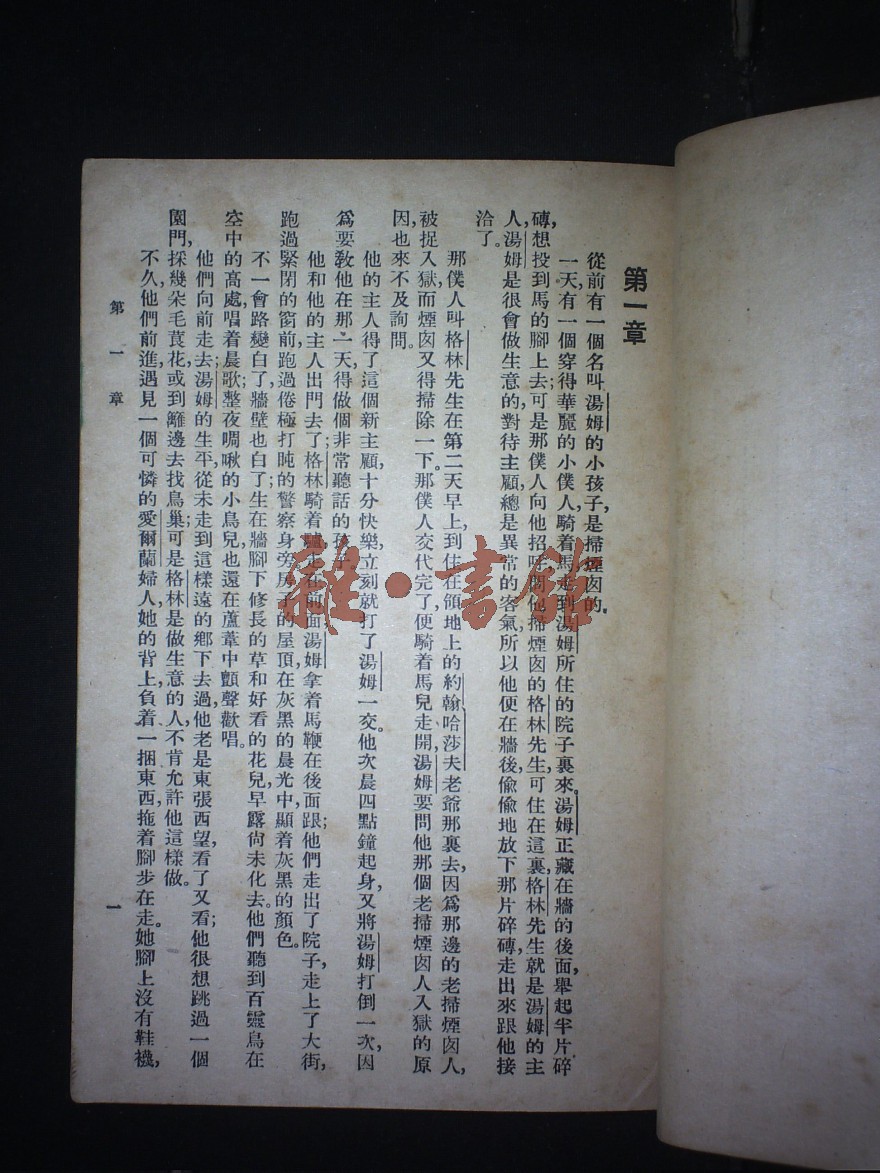 第一章
從前有一個名叫湯姆的小孩子，是掃煙囱的。
一天，有一個穿得華麗的小僕人，騎着馬走到湯姆所住的院子裏來。湯姆正藏在牆的後面，舉起半片碎
磚，想投到馬的腳上去；可是那僕人向他招呼，問他掃煙囱的格林先生，可住在這裏，格林先生就是湯姆的主
人，湯姆是很會做生意的，對待主顧，總是異常的客氣，所以他便在牆後偷偷地放下那片碎磚，走出來跟他接
洽了。
那僕人叫格林先生在第二天早上，到住在領地上的約翰哈莎夫老爺那裏去，因爲那邊的老掃煙囱人，
被捉入獄，而煙囱又得掃除一下。那僕人交代完了，便騎着馬兒走開，湯姆要問他那個老掃煙囱人入獄的原
因，也來不及詢問。
他的主人得了這個新主顧，十分快樂，立刻就打了湯姆一交。他次晨四點鐘起身，又將湯姆打倒一次，因
爲要教他在那一天，得做個非常聽話的孩子。
他和他的主人出門去了；格林騎着驢走在前面，湯姆拿着馬鞭在後面跟，他們走出了院子，走上了大街，
跑過緊閉的窗前，跑過倦極打盹的警察身旁，房子的屋頂，在灰黑的晨光中，顯着灰黑的顏色。
不一會，路變白了，牆壁也白了；生在牆腳下修長的草和好看的花兒，早露尚未化去。他們聽到百靈鳥在
空中的高處，唱着晨歌；整夜啁啾的小鳥兒，也還在蘆葦中顫聲歡唱。
他們向前走去；湯姆的生平，從未走到這樣遠的鄉下去過，他老是東張西望，看了又看；他很想跳過一個
園門，採幾朵毛莨花，或到籬邊去找鳥巢；可是格林是做生意的人，不肯允許他這樣做。
不久，他們前進，遇見一個可憐的愛爾蘭婦人，她的背上，負着一捆東西，拖着腳步在走。她腳上沒有鞋襪，
第一章
一
雜·書館